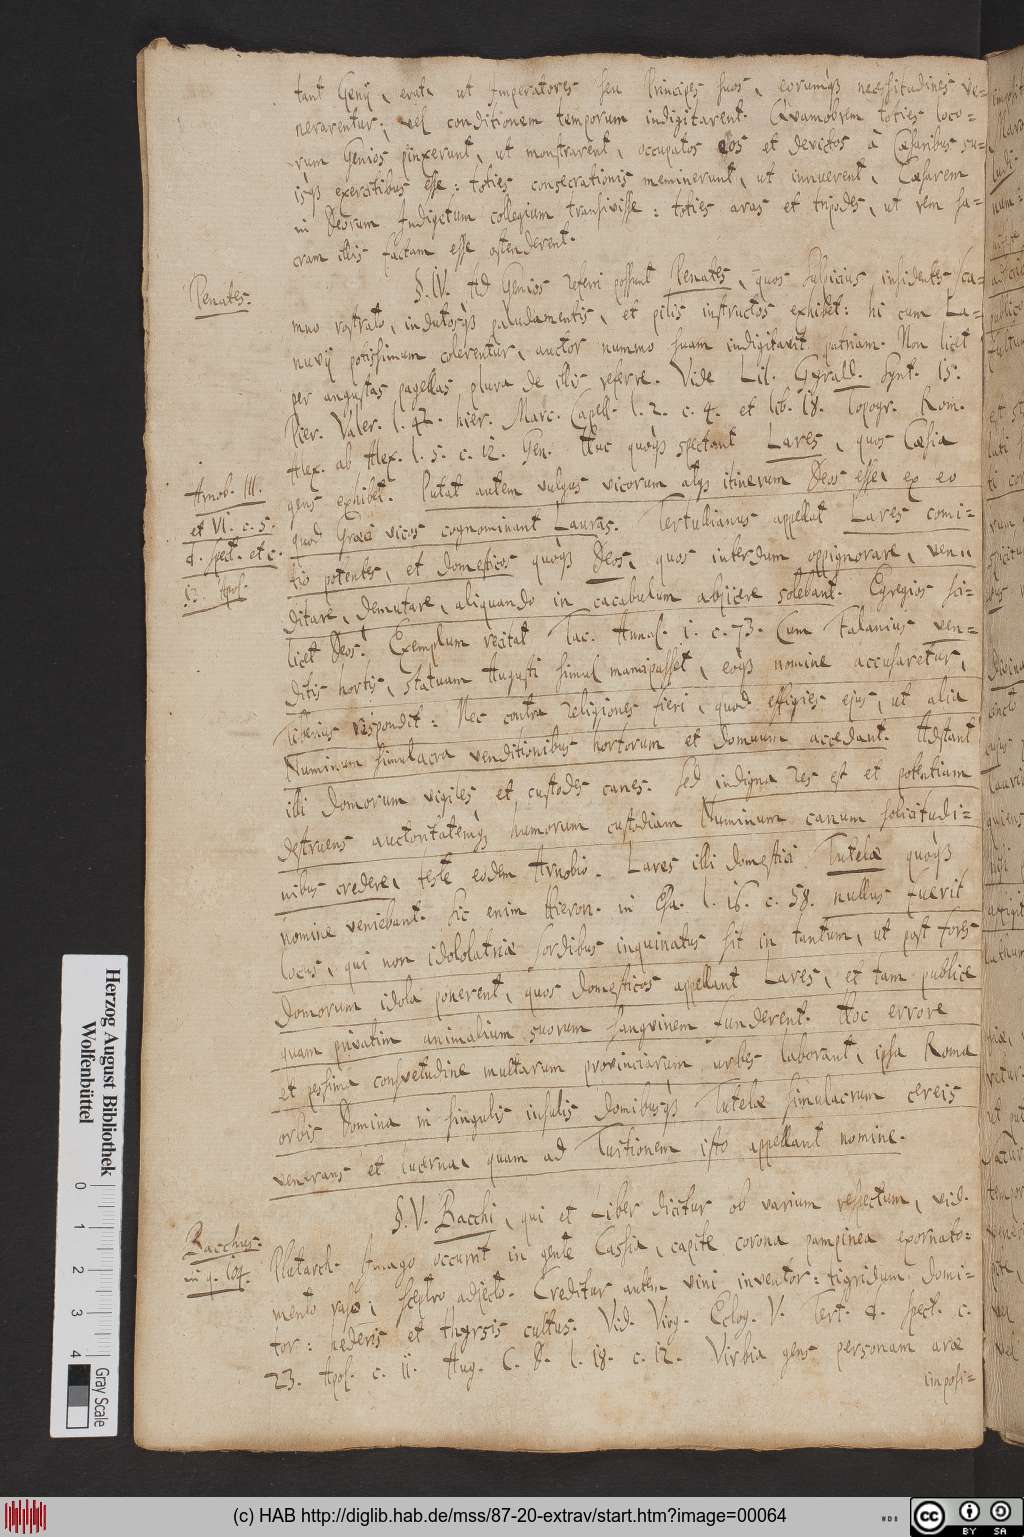 tant Genij, erat, ut Imperatores seu Principes suos, eorumqз necessitudines ve=
nerarentur; vel conditionem temporum indigitarent. Qvamobrem toties loco=
rum Genios pinxerunt, ut monstrarent, occupatos eos et devictos à Cæsaribus su=
isqз exercitibus esse: toties consecrationis meminerunt, ut innuerent, Cæsarem
in Deorum Indigetum collegium transivisse: toties aras et tripodes, ut rem sa=
cram illis factam esse ostenderent.
Penates.
§. IV. Ad Genios referri possunt Penates, quos Sulpicius insidentes sca=
mno rostrato, indutosqз paludamentis, et pilis instructos exhibet: hi cum La=
nuvij potissimum colerentur, auctor nummo suam indigitavit patriam. Non licet
per angustas pagellas plura de illis referre. Vide Lil. Gyrald. Synt. 15.
Pier. Valer. l. 42. hier. Marc. Capell. l. 2. c. 4. et lib. 18. Topogr. Rom.
Alex. ab Alex. l. 5. c. 12. Gen. Huc quoqз spectant Lares, quos Cæsia
Arnob. III.
et VI. c. 5.
d. spect. etc.
13. Apol.
gens exhibet. Putat autem vulgus vicorum atqз itinerum Deos esse, ex eo
quod Græci vicos cognominant Lauras. Tertullianus appellat Lares comi=
tio potentes, et domesticos quoqз Deos, quos interdum oppignorare, ven=
ditare, demutare, aliquando in cacabulum abjicere solebant. Egregios sci=
licet Deos! Exemplum recitat Tac. Annal. 1. c. 73. Cum Falanius ven=
ditis hortis, statuam Augusti simul mancipasset, eoqз nomine accusaretur,
Tiberius respondit: Nec contra religiones fieri, quod effigies ejus, ut alia
Numinum simulacra venditionibus hortorum et domuum accedant. Adstant
illi domorum vigiles et custodes canes. Sed indigna res est et potentiam
destruens auctoritatemqз humorum custodiam Numinum canum solicitudi=
nibus credere, teste eodem Arnobio. Lares illi domestici Tutelæ quoqз
nomine veniebant. Sic enim Hieron. in Esa. l. 16. c. 58. nullus fuerit
locus, qui non idololatriæ sordibus inquinatus sit in tantum, ut post fores
domorum idola ponerent, quos domesticos appellant Lares, et tam publice
quam privatim animalium suorum sangvinem funderent. Hoc errore
et pessima consvetudine multarum provinciarum urbes laborant, ipsa Roma
orbis Domina in singulis insulis domibusqз Tutelæ simulacrum cereis
venerans et lucerna, quam ad Tuitionem isto appellant nomine.
Bacchus.
in q. Coq.
§. V. Bacchi, qui et Liber dicitur ob varium respectum, vid.
Plutarch. Imago occurrit in gente Cassia, capite corona pampinea exornato:
mento raso; sceptro adjecto. Creditur autem vini inventor: tigridum domi=
tor: hederis et thyrsis cultus. Vid. Virg. Eclog. V. Tert. d. spect. c.
23. Apol. c. 11. Aug. C. D. l. 18. c. 12. Virbia gens personam aræ
imposi=
Herzog August Bibliothek
Wolfenbüttel
0 1 2 3 4
Gray Scale
(c) HAB http://diglib.hab.de/mss/87-20-extrav/start.htm?image=00064
cc BY SA